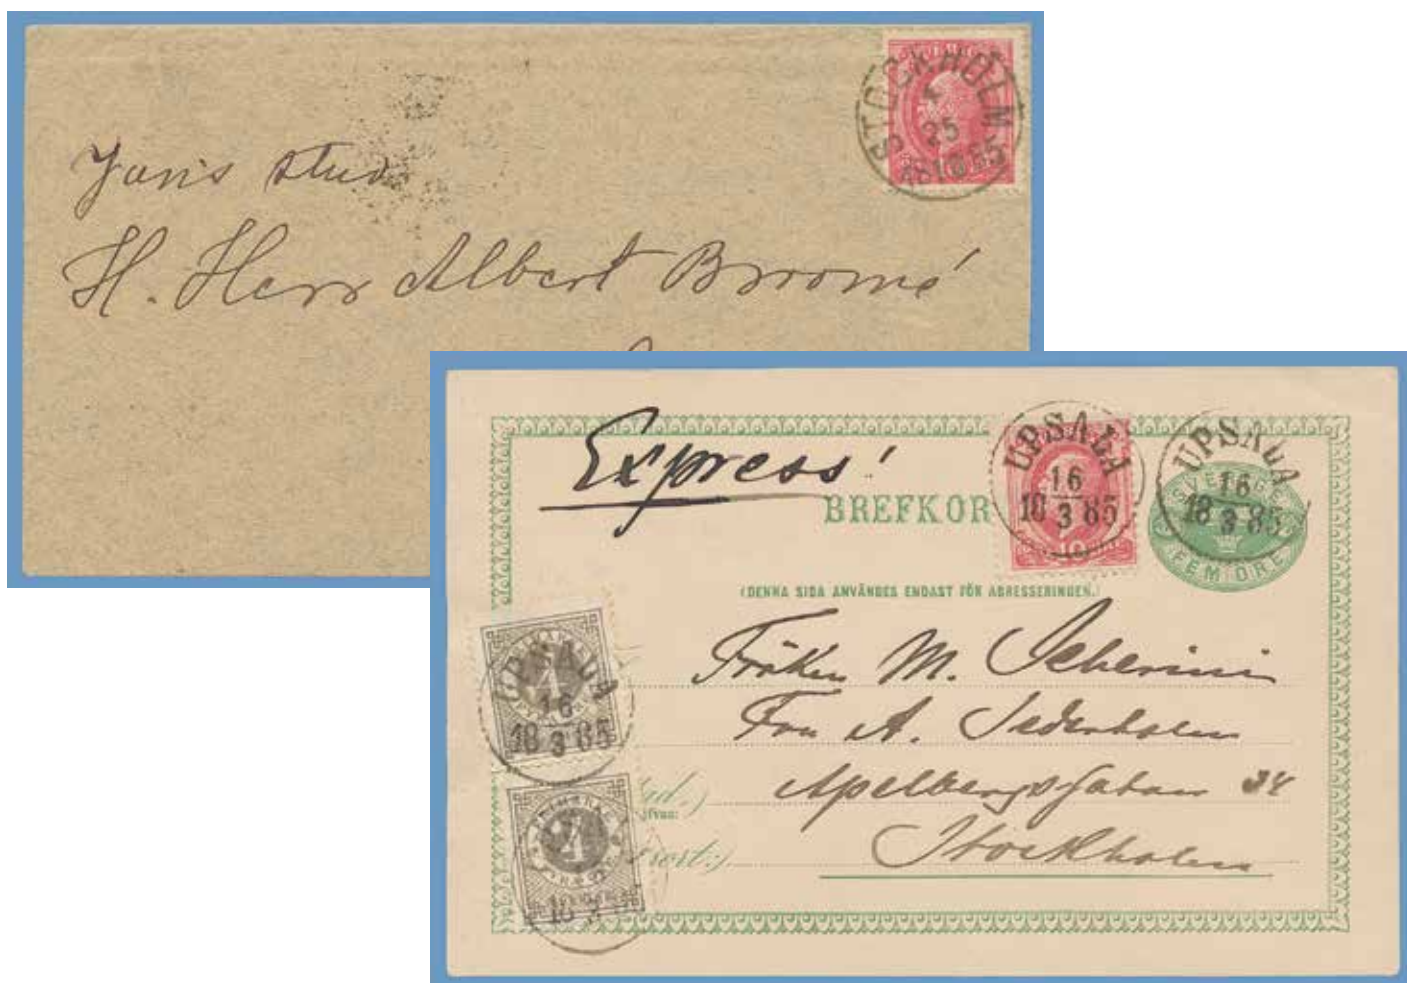 STOCKHOLM
25
1885
Juris stud.
H. Herr Albert Broomé
Express!
BREFKOR
UPSALA
16
18 3 85
10
UPSALA
16
18 3 85
SVERIGE
FEM ÖRE
(DENNA SIDA ANVÄNDES ENDAST FÖR ADRESSERINGEN.)
UPSALA
16
18 3 85
4
FRIMÄRKE
4
18 3
Fröken M.
Fru A. Sederholm
Apelbergsgatan 34
Stockholm